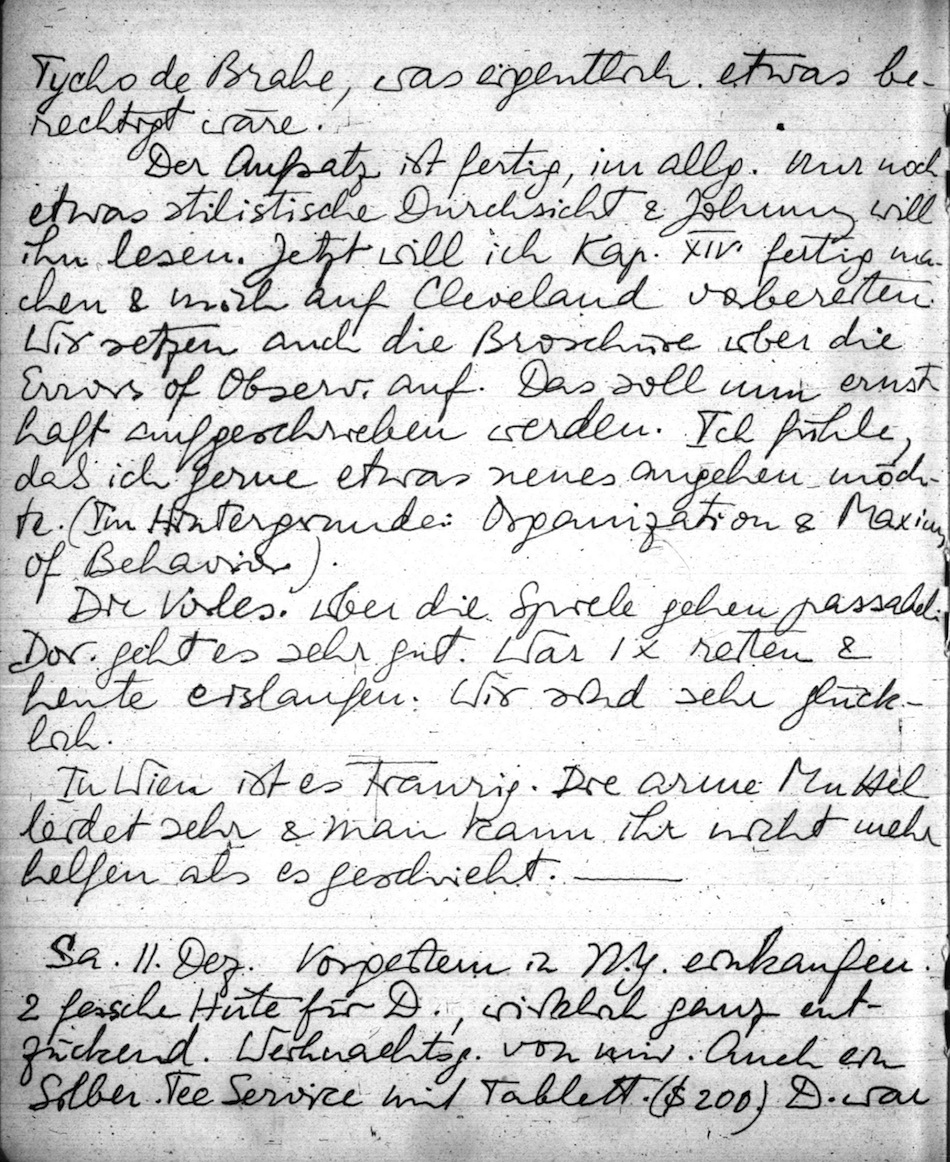 Tycho de Brahe, was eigentlich etwas be-
rechtigt wäre.
Der Aufsatz ist fertig, im allg. Nur noch
etwas stilistische Durchsicht & Johnny will
ihn lesen. Jetzt will ich Kap. XIV. fertig ma-
chen & mich auf Cleveland vorbereiten.
Wir setzen auch die Broschüre über die
Errors of Observ. auf. Das soll nun ernst
haft aufgeschrieben werden. Ich fühle,
daß ich gerne etwas neues angehen möch-
te. (Im Hintergrunde: Organization & Maxims
of Behavior).
Die Vorles. über die Spiele gehen passabel.
Dor. geht es sehr gut. War 1x reiten &
heute eislaufen. Wir sind sehr glück-
lich.
In Wien ist es traurig. Die arme Muttel
leidet sehr & man kann ihr nicht mehr
helfen als es geschieht. ———
Sa. 11. Dez. Vorgestern in N.Y. einkaufen.
2 fesche Hüte für D., wirklich ganz ent-
zückend. Weihnachtsg. von mir. Auch ein
Silber Tee Service mit Tablett. ($ 200) D. war